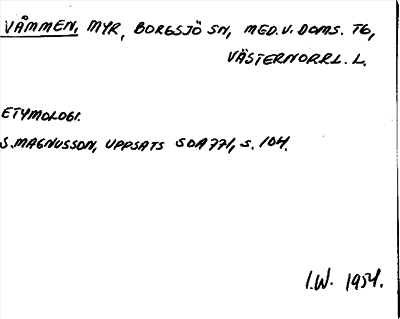 VÅMMEN, MYR, BORGSJÖ SN, MED.V. DOMS. TG,
VÄSTERNORRL. L.
ETYMOLOGI.
S. MAGNUSSON, UPPSATS SOA 771, S. 104.
I.W. 1954.